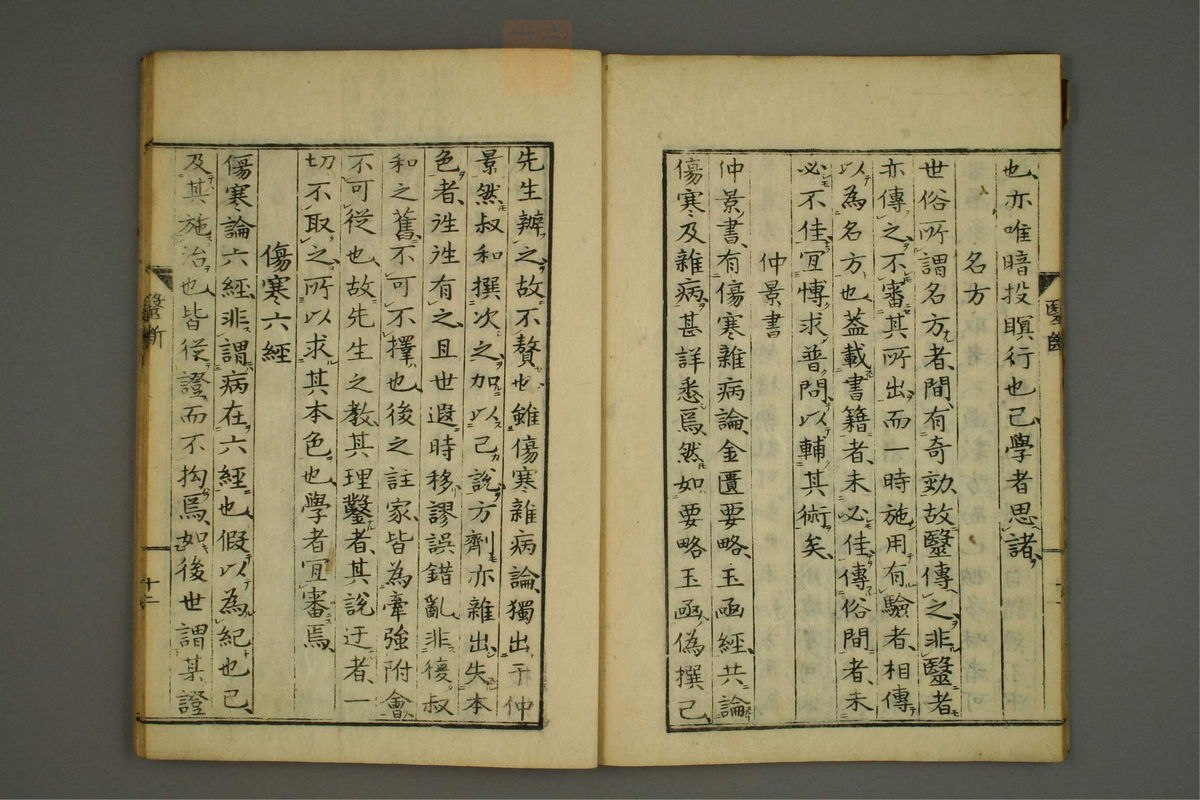 也亦唯暗投瞑行也已學者思諸
名方
世俗所謂名方者間有奇効故毉傳之非毉者
亦傳之不審其所出而一時施用有驗者相傳
以為名方也蓋載書籍者未必佳傳俗間者未
必不佳宜慱求普問以輔其術矣
仲景書
仲景書有傷寒雜病論金匱要略玉函經共論
傷寒及雜病甚詳悉焉然如要略玉函偽撰已
先生辨之故不贅也雖傷寒雜病論獨出于仲
景然叔和撰次之加以己說方劑亦雜出失本
色者徃徃有之且世遐時移謬誤錯亂非復叔
和之舊不可不擇也後之註家皆為牽強附會
不可從也故先生之教其理鑿者其說迂者一
切不取之所以求其本色也學者宜審焉
傷寒六經
傷寒論六經非謂病在六經也假以為紀也已
及其施治也皆從證而不拘焉如後世謂某證
毉斷
十二